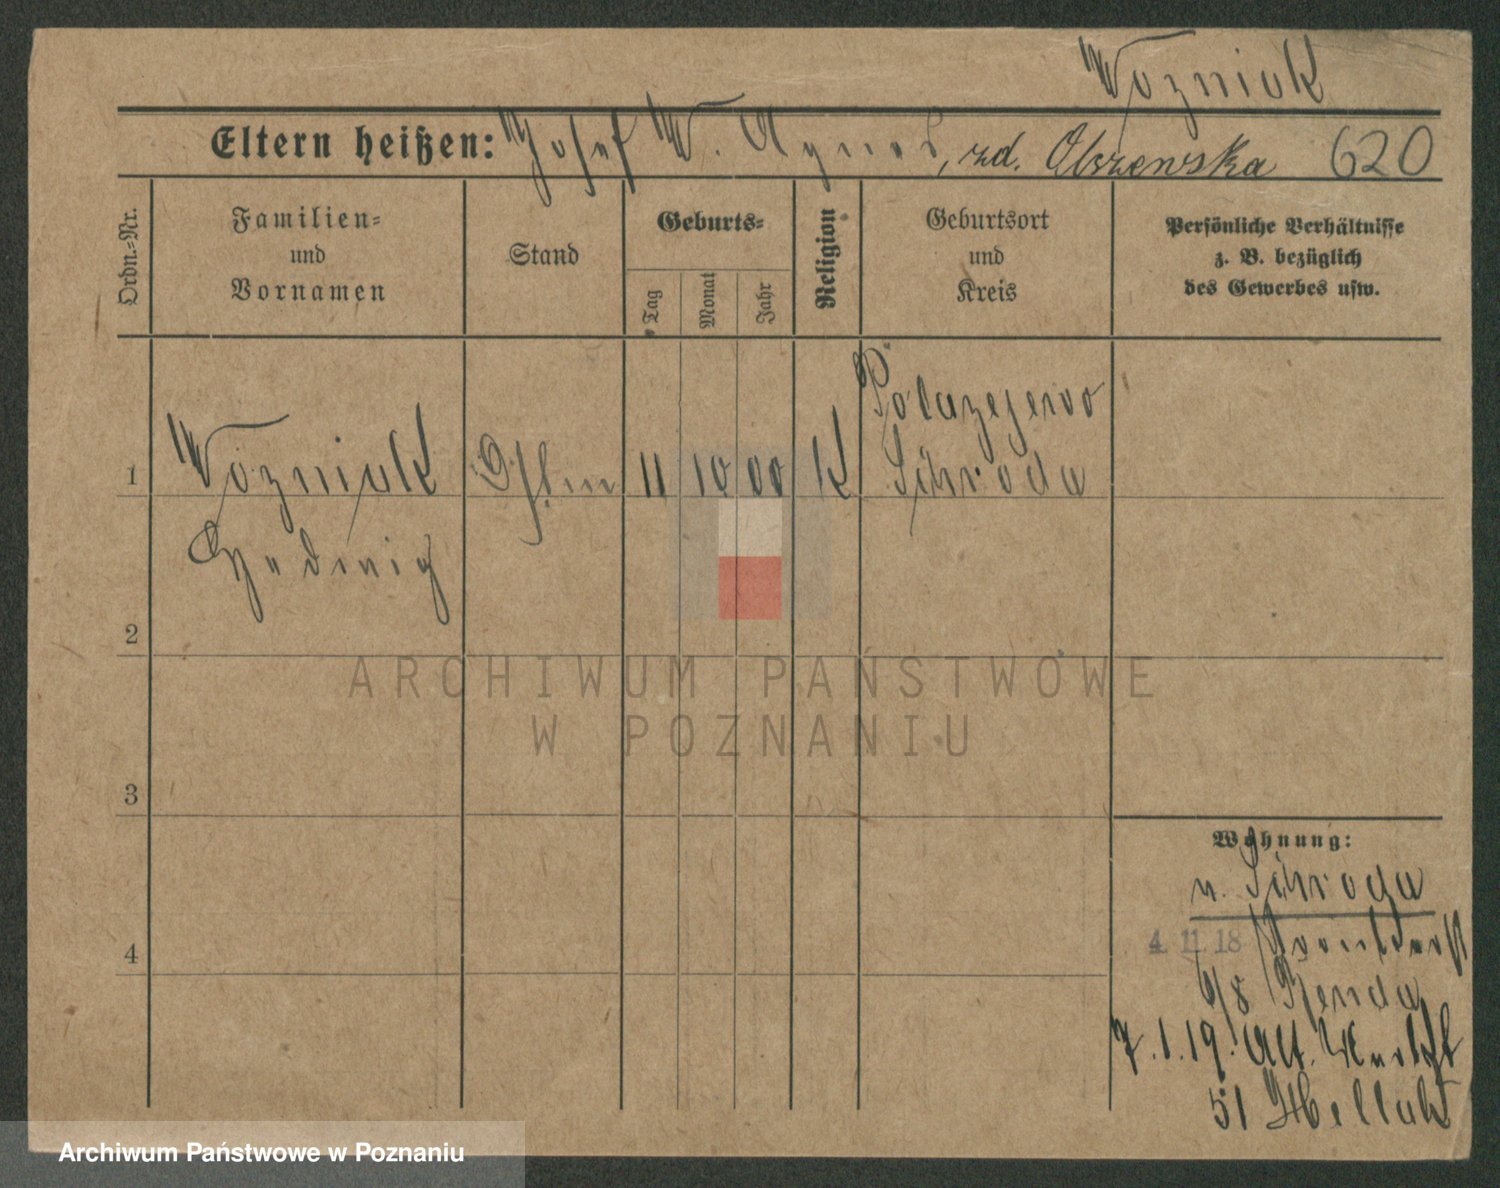 Wozniak
Eltern heißen: Josef W. Agnes, zd. Olszewska 620
Ordn.-Nr.
Familien-
und
Vornamen
Stand
Geburts-
Tag
Monat
Jahr
Religion
Geburtsort
und
Kreis
Persönliche Verhältnisse
z. B. bezüglich
des Gewerbes usw.
1 Wozniak 11 10 00 K Polazejewo
Schroda
Hedwig
2
3
4
Wohnung:
v. Schroda
4. 11. 18
6/8
7.1.19. Alt. Markt
51
ARCHIWUM PAŃSTWOWE
W POZNANIU
Archiwum Państwowe w Poznaniu